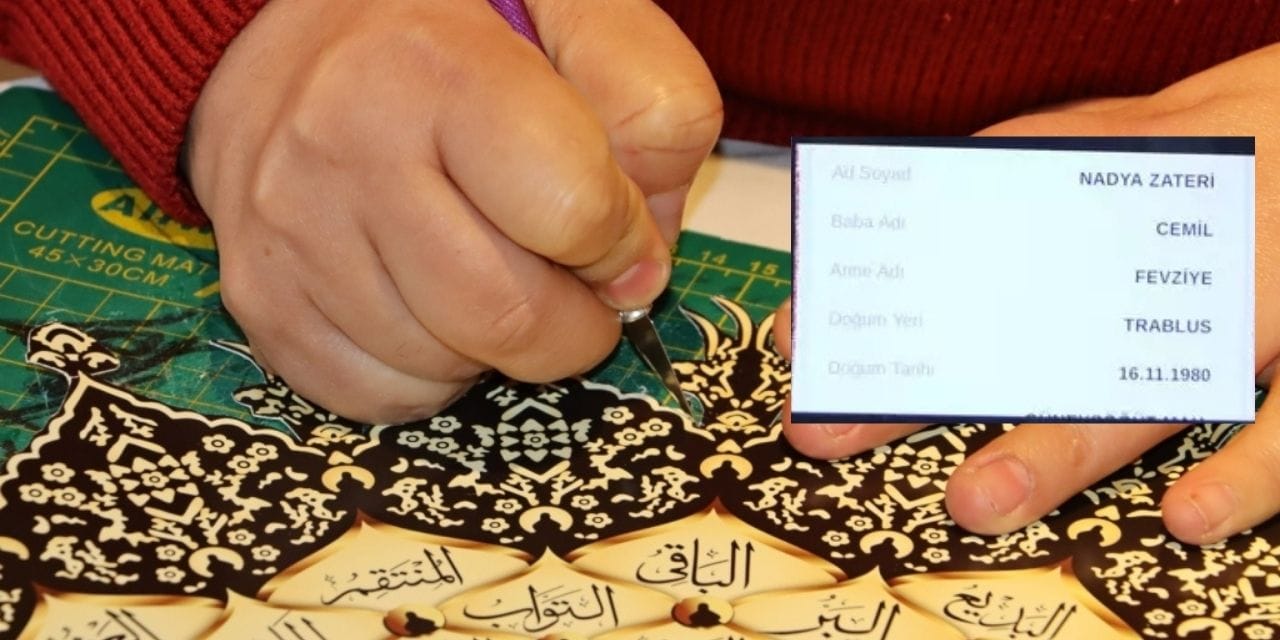 CUTTING MAT
45×30CM
14 15
Ad Soyad NADYA ZATERİ
Baba Adı CEMİL
Anne Adı FEVZİYE
Doğum Yeri TRABLUS
Doğum Tarihi 16.11.1980
الباقي
المنتقم
التواب
البر
البديع